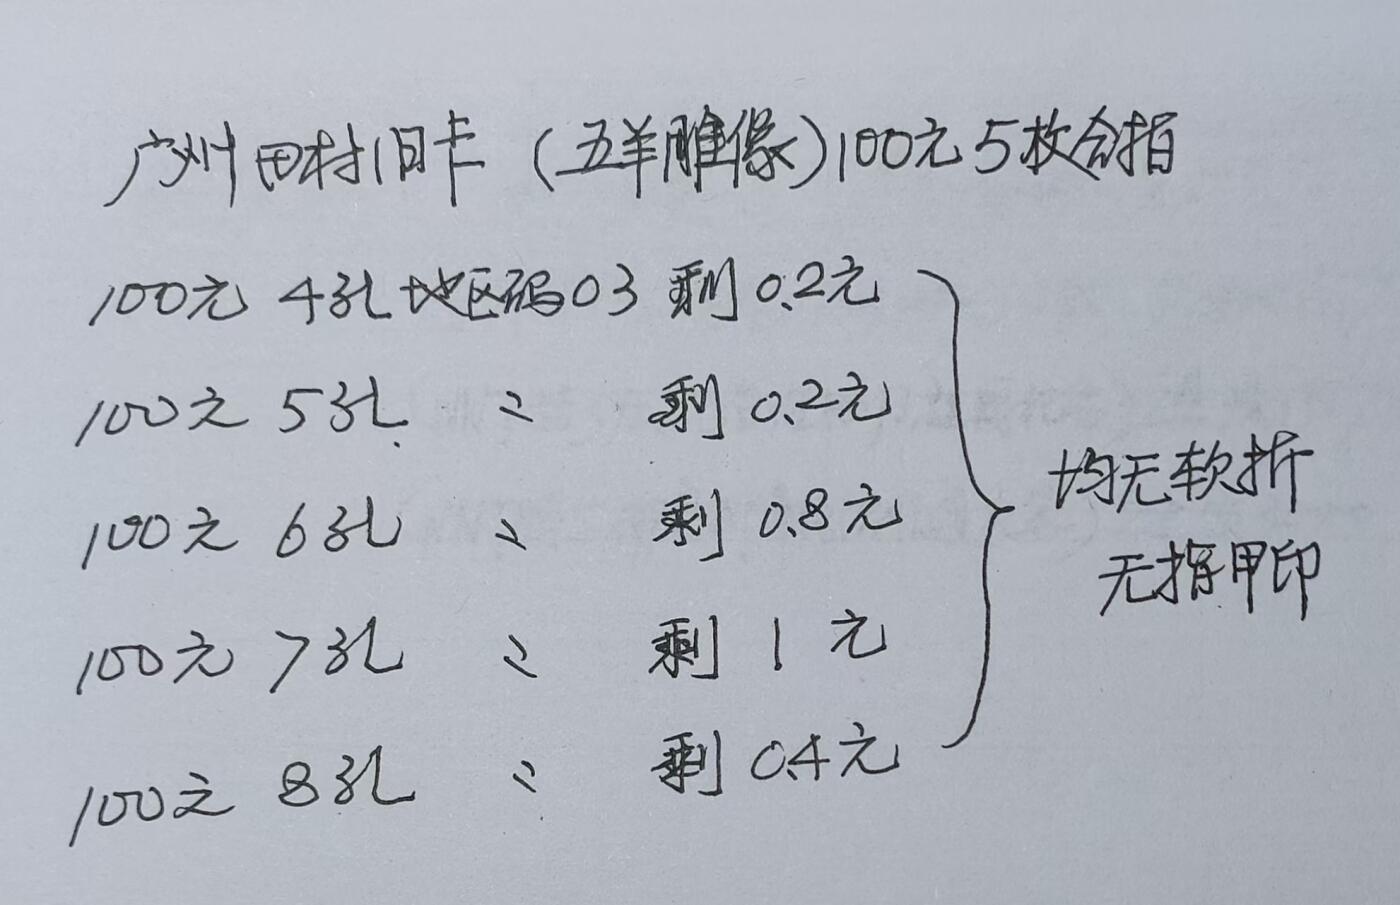 广州田村旧卡（五羊雕像）100元5枚合拍
100元 4孔 地区码03 剩0.2元
100元 5孔 〃 剩0.2元
100元 6孔 〃 剩0.8元
100元 7孔 〃 剩1元
100元 8孔 〃 剩0.4元
均无软折
无指甲印